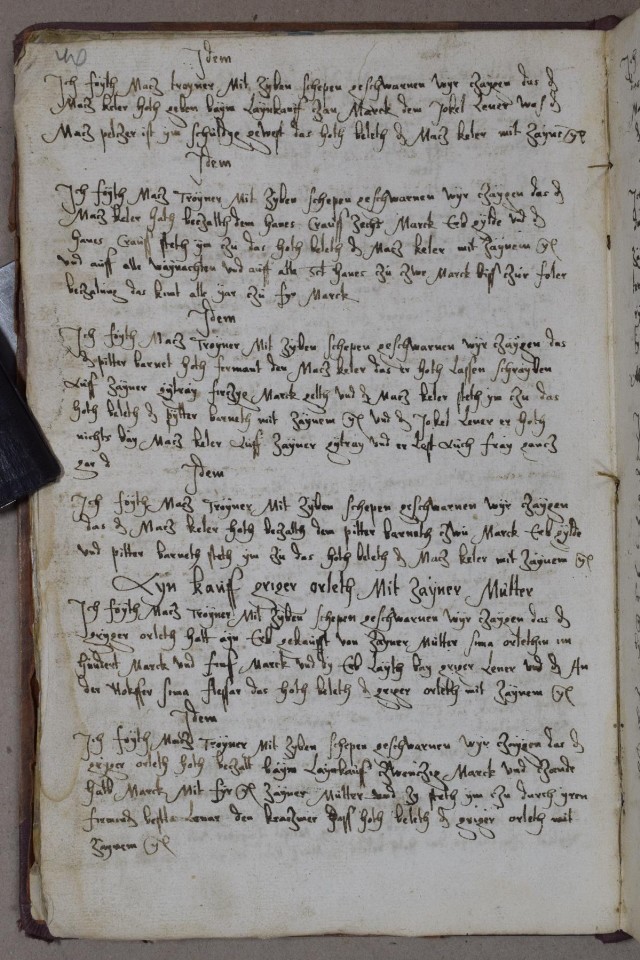 40
Idem
Ich foyth Macz troyner Mit zyben schepen geschwarnen wyr zaygen das d
Macz keler hoth geben baym Laynkauff Zan Marck dem Jokel Lener was d
Macz pelczer ist ym schuldyg gewest das hoth beleth d Macz keler mit zayne
Idem
Ich foyth Macz Troyner Mit Zyben schepen geschwarnen wyr Czaygen das d
Macz keler hoth beczallth dem hanes Crauss zechs Marck Erb gylde vnd d
hanes Crauss steth ym zu das hoth beleth d Macz keler mit Zaynem
vnd auff alle waynachten vnd auff alle hanes zu zwe Marck byss zur foler
beczalung das kimt alle yar czu fyr Marck
Idem
Ich foyth Macz Troyner Mit Zyben schepen geschwarnen wyr zaygen das
d pitter barnet hoth fermant den Macz keler das er hoth Lassen schrayben
Auff Zayner gytray Marck gelth vnd d Macz keler steth ym czu das
hoth beleth d pytter barneth mit zaynem vnd d Jokel Lener er hoth
nichts bay Macz keler Auff Zayner gytray vnd er Lest Auch fray gancz
gar d
Idem
Ich foyth Macz Troyner Mit Zyben schepen geschwarnen wyr Zaygen
das d Macz keler hoth beczalth dem pitter barneth zwu Marck Erb gylde
vnd pitter barneth steth ym zu das hoth beleth d Macz keler mit Zaynem
Ayn kauff greger orleth Mit Zayner Mutter
Ich foyth Macz Troyner Mit Zyben schepen geschwarnen wyr Zaygen das d
Greger orleth hatt ayn Erb gekaufft von Zayner Mutter sima orlethin um
hundert Marck vnd funf Marck vnd dy Erb Layth bay greger Lener vnd d An
der Nokffer sima flessar das hoth beleth d greger orleth mit Zaynem
Idem
Ich foyth Macz Troyner Mit Zyben schepen geschwarnen wyr Zaygen das d
greger orleth hoth beczalt baym Laynkauff Zwenczyg Marck vnd
halb Marck Mit fyr Zayner Mutter vnd zy steth ym czu durch yren
fremde Lenar den kraczmer hoth beleth d greger orleth mit
zaynem